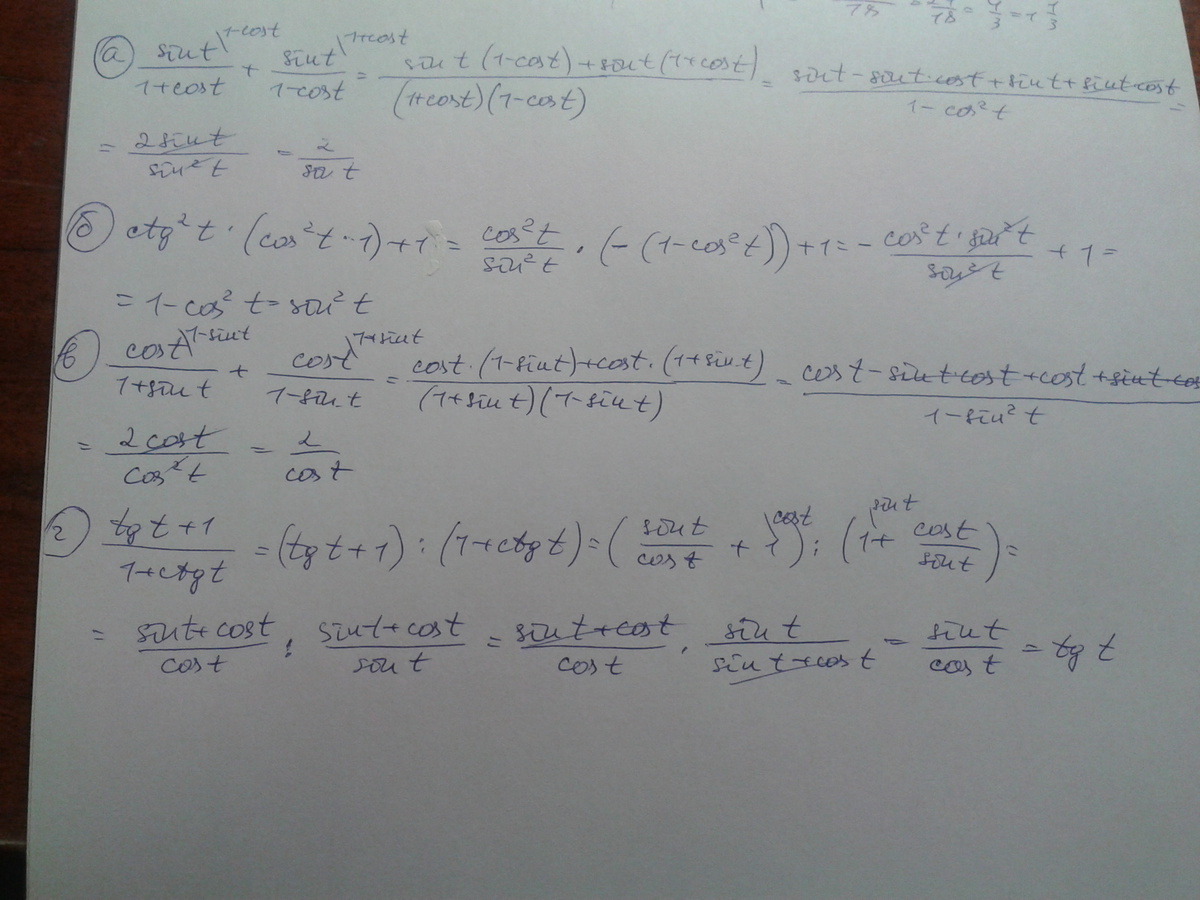 = 4/3 = 1 1/3
а) sin t \1-cos t / 1+cos t + sin t \1+cos t / 1-cos t = sin t (1-cos t) + sin t (1+cos t) / (1+cos t)(1-cos t) = sin t - sin t·cos t + sin t + sin t·cos t / 1 - cos² t =
= 2 sin t / sin² t = 2 / sin t
б) ctg² t · (cos² t - 1) + 1 = cos² t / sin² t · (-(1-cos² t)) + 1 = - cos² t · sin² t / sin² t + 1 =
= 1 - cos² t = sin² t
в) cos t \1-sin t / 1+sin t + cos t \1+sin t / 1-sin t = cos t · (1-sin t) + cos t · (1+sin t) / (1+sin t)(1-sin t) = cos t - sin t·cos t + cos t + sin t·cos / 1 - sin² t
= 2 cos t / cos² t = 2 / cos t
г) tg t + 1 / 1+ctg t = (tg t + 1) : (1+ctg t) = (sin t / cos t + 1 \cos t) : (1 \sin t + cos t / sin t) =
= sin t + cos t / cos t : sin t + cos t / sin t = sin t + cos t / cos t · sin t / sin t + cos t = sin t / cos t = tg t